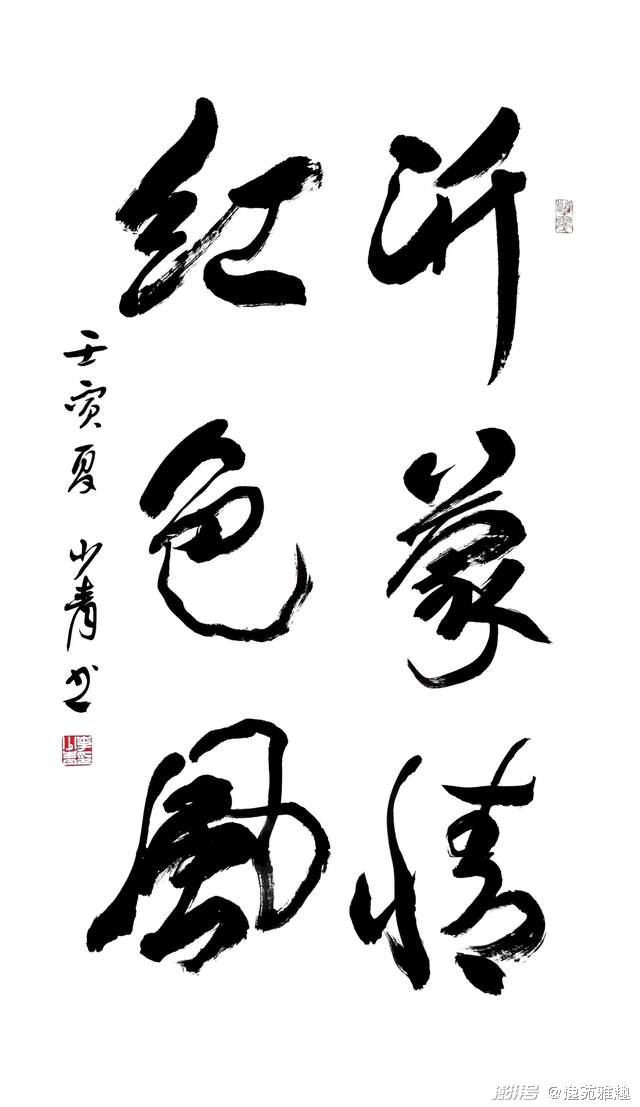 沂蒙情
红色风
壬寅夏 少青书
澎湃号 @逸苑雅趣